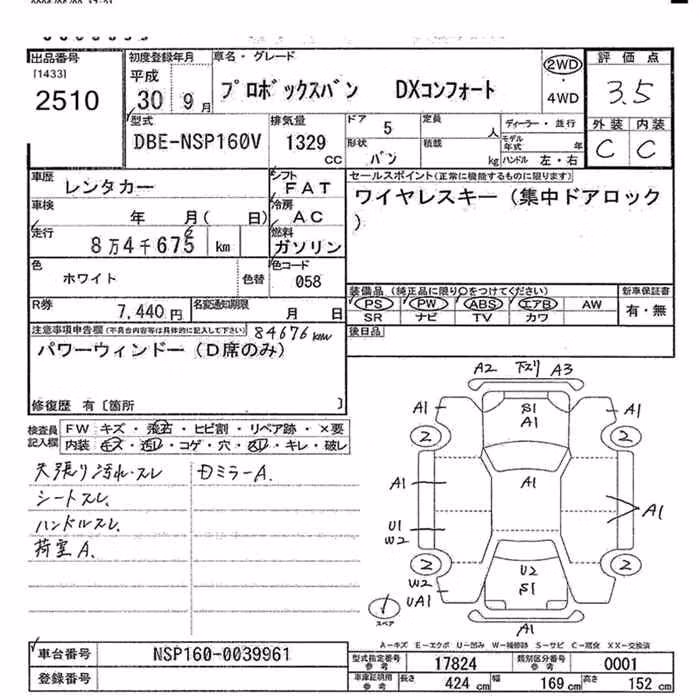 出品番号
[1433]
2510
初度登録年月
平成
30 9月
車名・グレード
プロボックスバン DXコンフォート
2WD
4WD
評価点
3.5
外装 内装
C C
型式
DBE-NSP160V
排気量
1329
CC
ドア 5
形状
バン
定員
人
積載
kg
ディーラー・並行
モデル年式 年
ハンドル 左・右
車歴
レンタカー
シフト
FAT
車検
年 月( 日)
冷房
AC
走行
8万4千675 km
6
燃料
ガソリン
色
ホワイト
色替
色コード
058
R券
7,440円
名変通知期限
月 日
セールスポイント(正常に機能するものに限ります)
ワイヤレスキー(集中ドアロック
)
装備品(純正品に限り○をつけてください)
PS PW ABS エアB AW
SR ナビ TV カワ
新車保証書
有・無
後日品
注意事項申告欄(不具合内容等は具体的に記入して下さい)
84676km
パワーウィンドー(D席のみ)
修復歴 有〔箇所 〕
検査員
記入欄
FW キズ・飛石・ヒビ割・リペア跡・×要
内装 キズ・汚レ・コゲ・穴・スレ・キレ・破レ
天張り汚れ・スレ
シートスレ
ハンドルスレ
荷室A.
DミラーA.
A2 下スリ A3
S1
A1
A1
A1
2
2
A1
A1
A1
U1
W2
2
2
W2
UA1
U2
S1
A1
スペア
A-キズ E-エクボ U-凹み W-補修跡 S-サビ C-腐食 XX-交換済
車台番号
NSP160-0039961
登録番号
型式指定番号
参考
17824
類別区分番号
参考
0001
車庫証明用
参考
長さ 424cm
幅 169cm
高さ 152cm